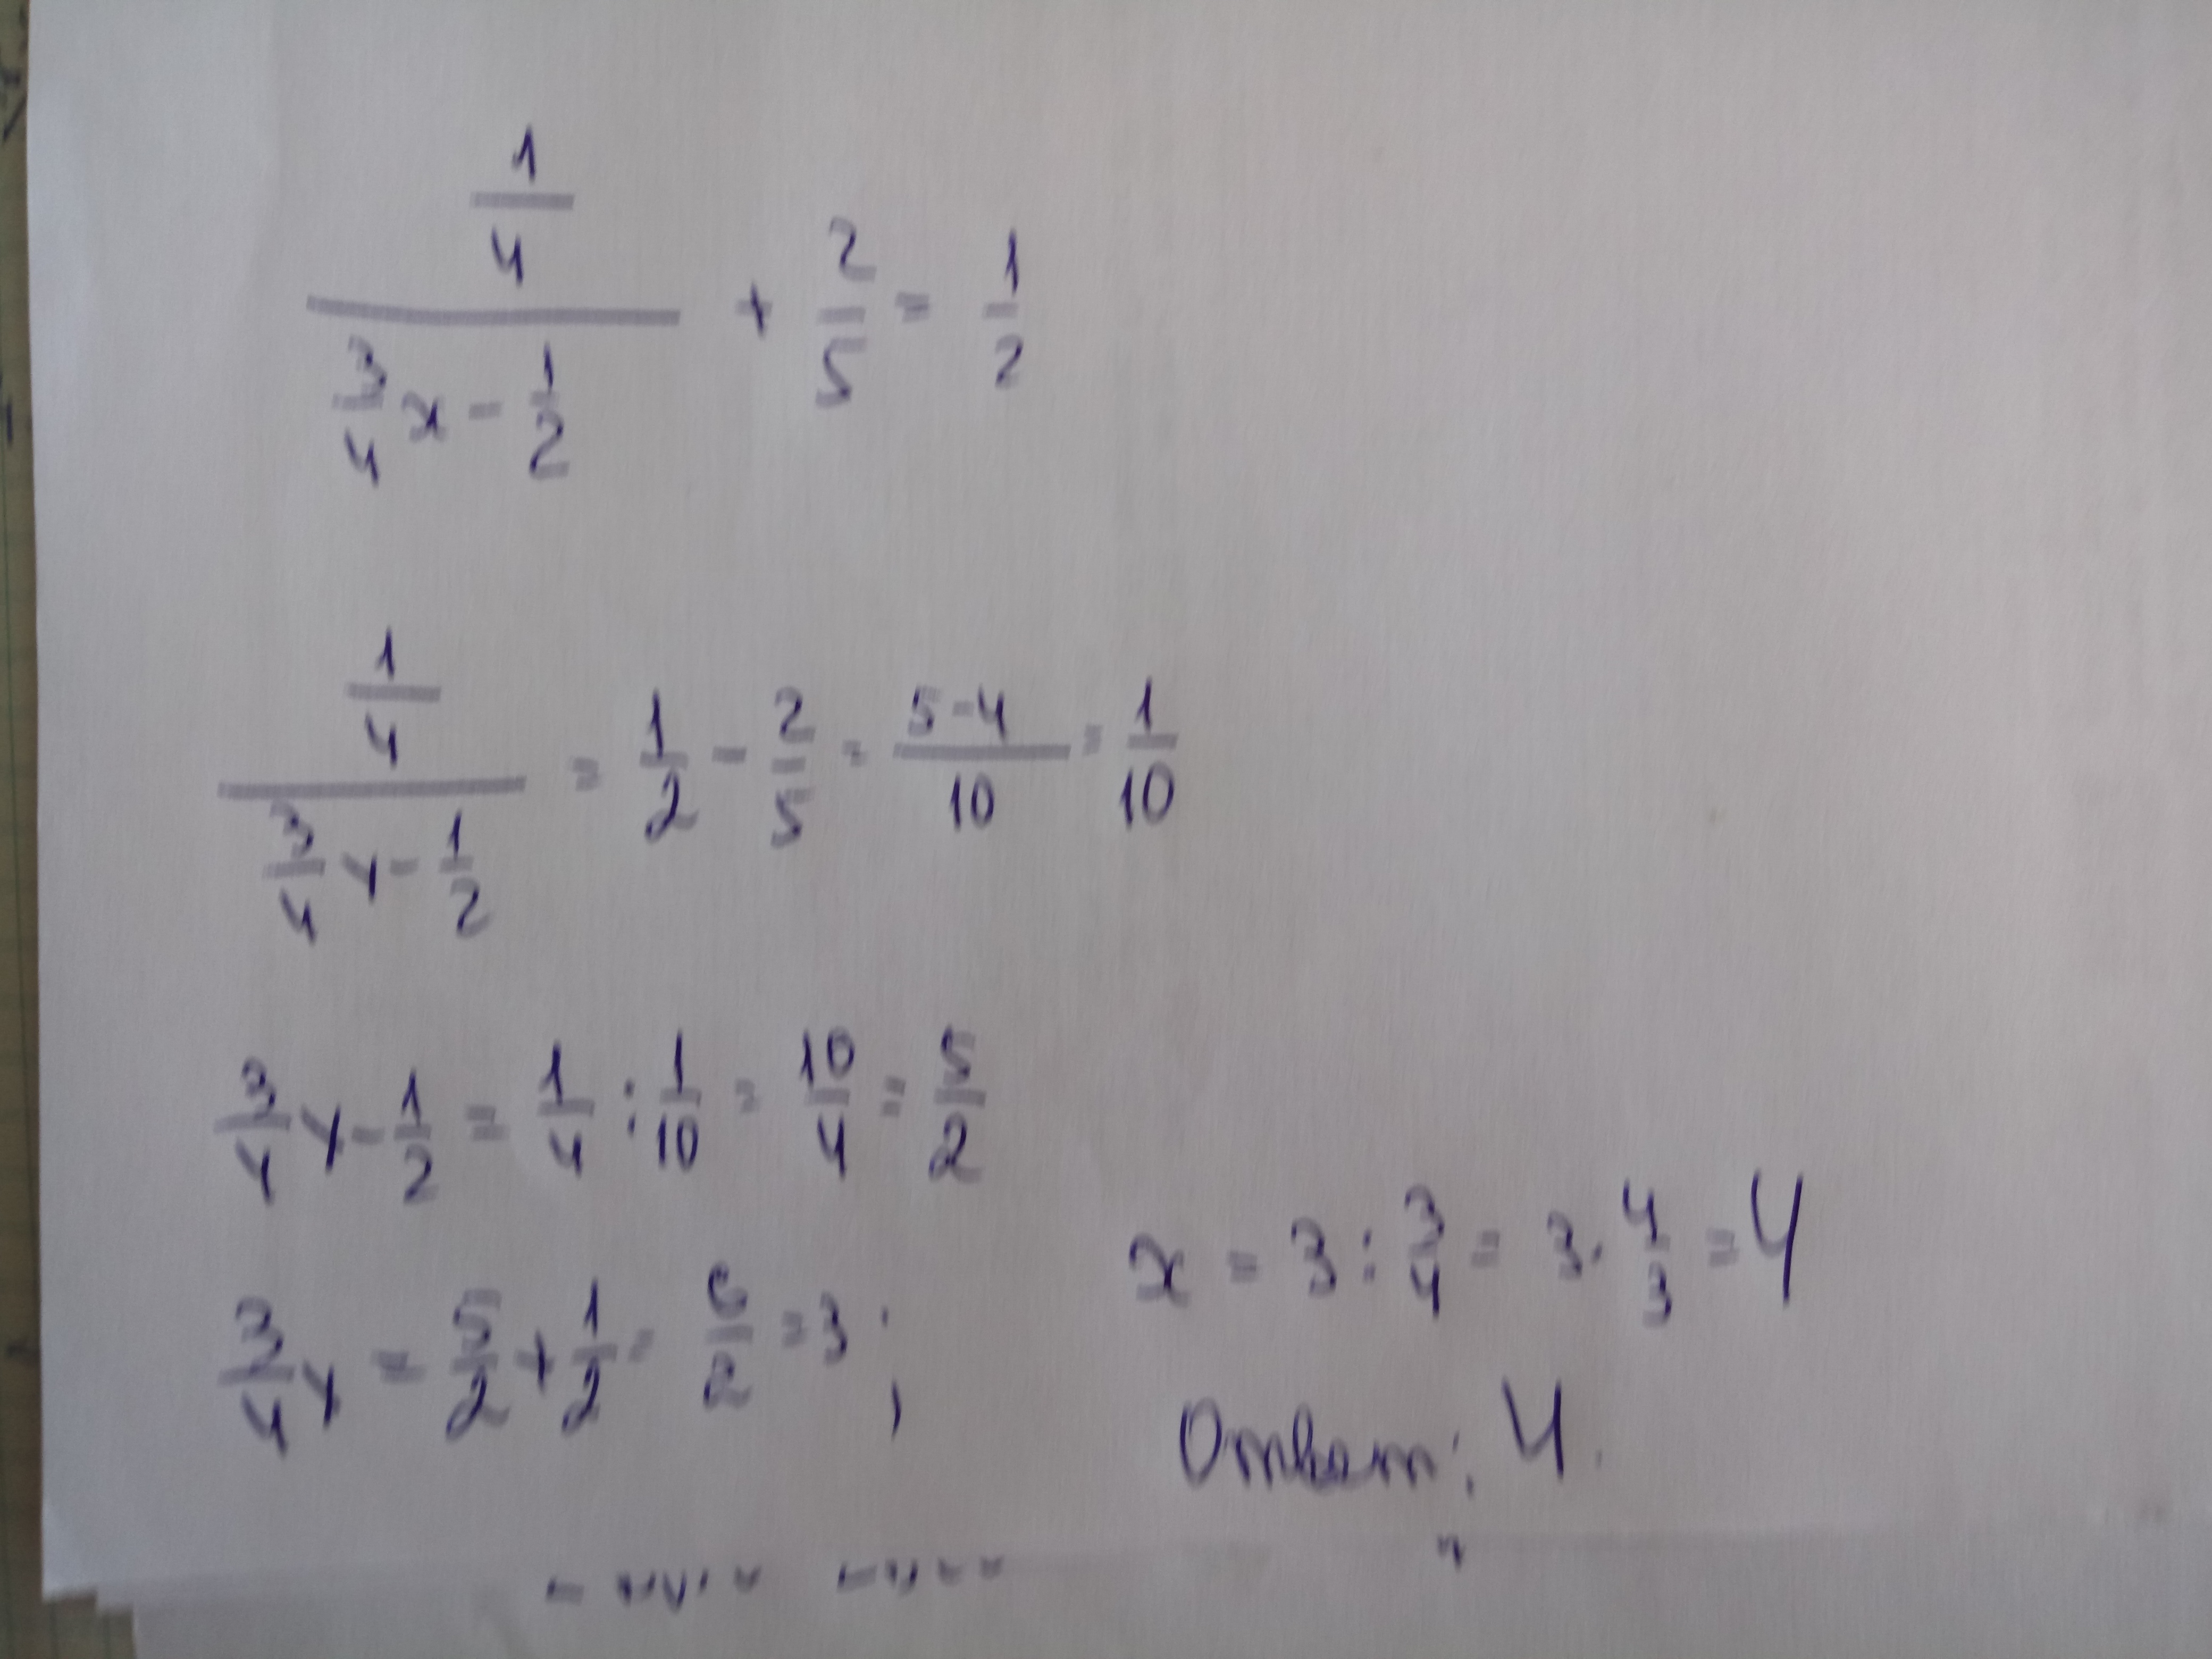 (1/4)/(3/4 x - 1/2) + 2/5 = 1/2
(1/4)/(3/4 x - 1/2) = 1/2 - 2/5 = (5-4)/10 = 1/10
3/4 x - 1/2 = 1/4 : 1/10 = 10/4 = 5/2
3/4 x = 5/2 + 1/2 = 6/2 = 3;
x = 3 : 3/4 = 3 · 4/3 = 4
Ответ: 4.